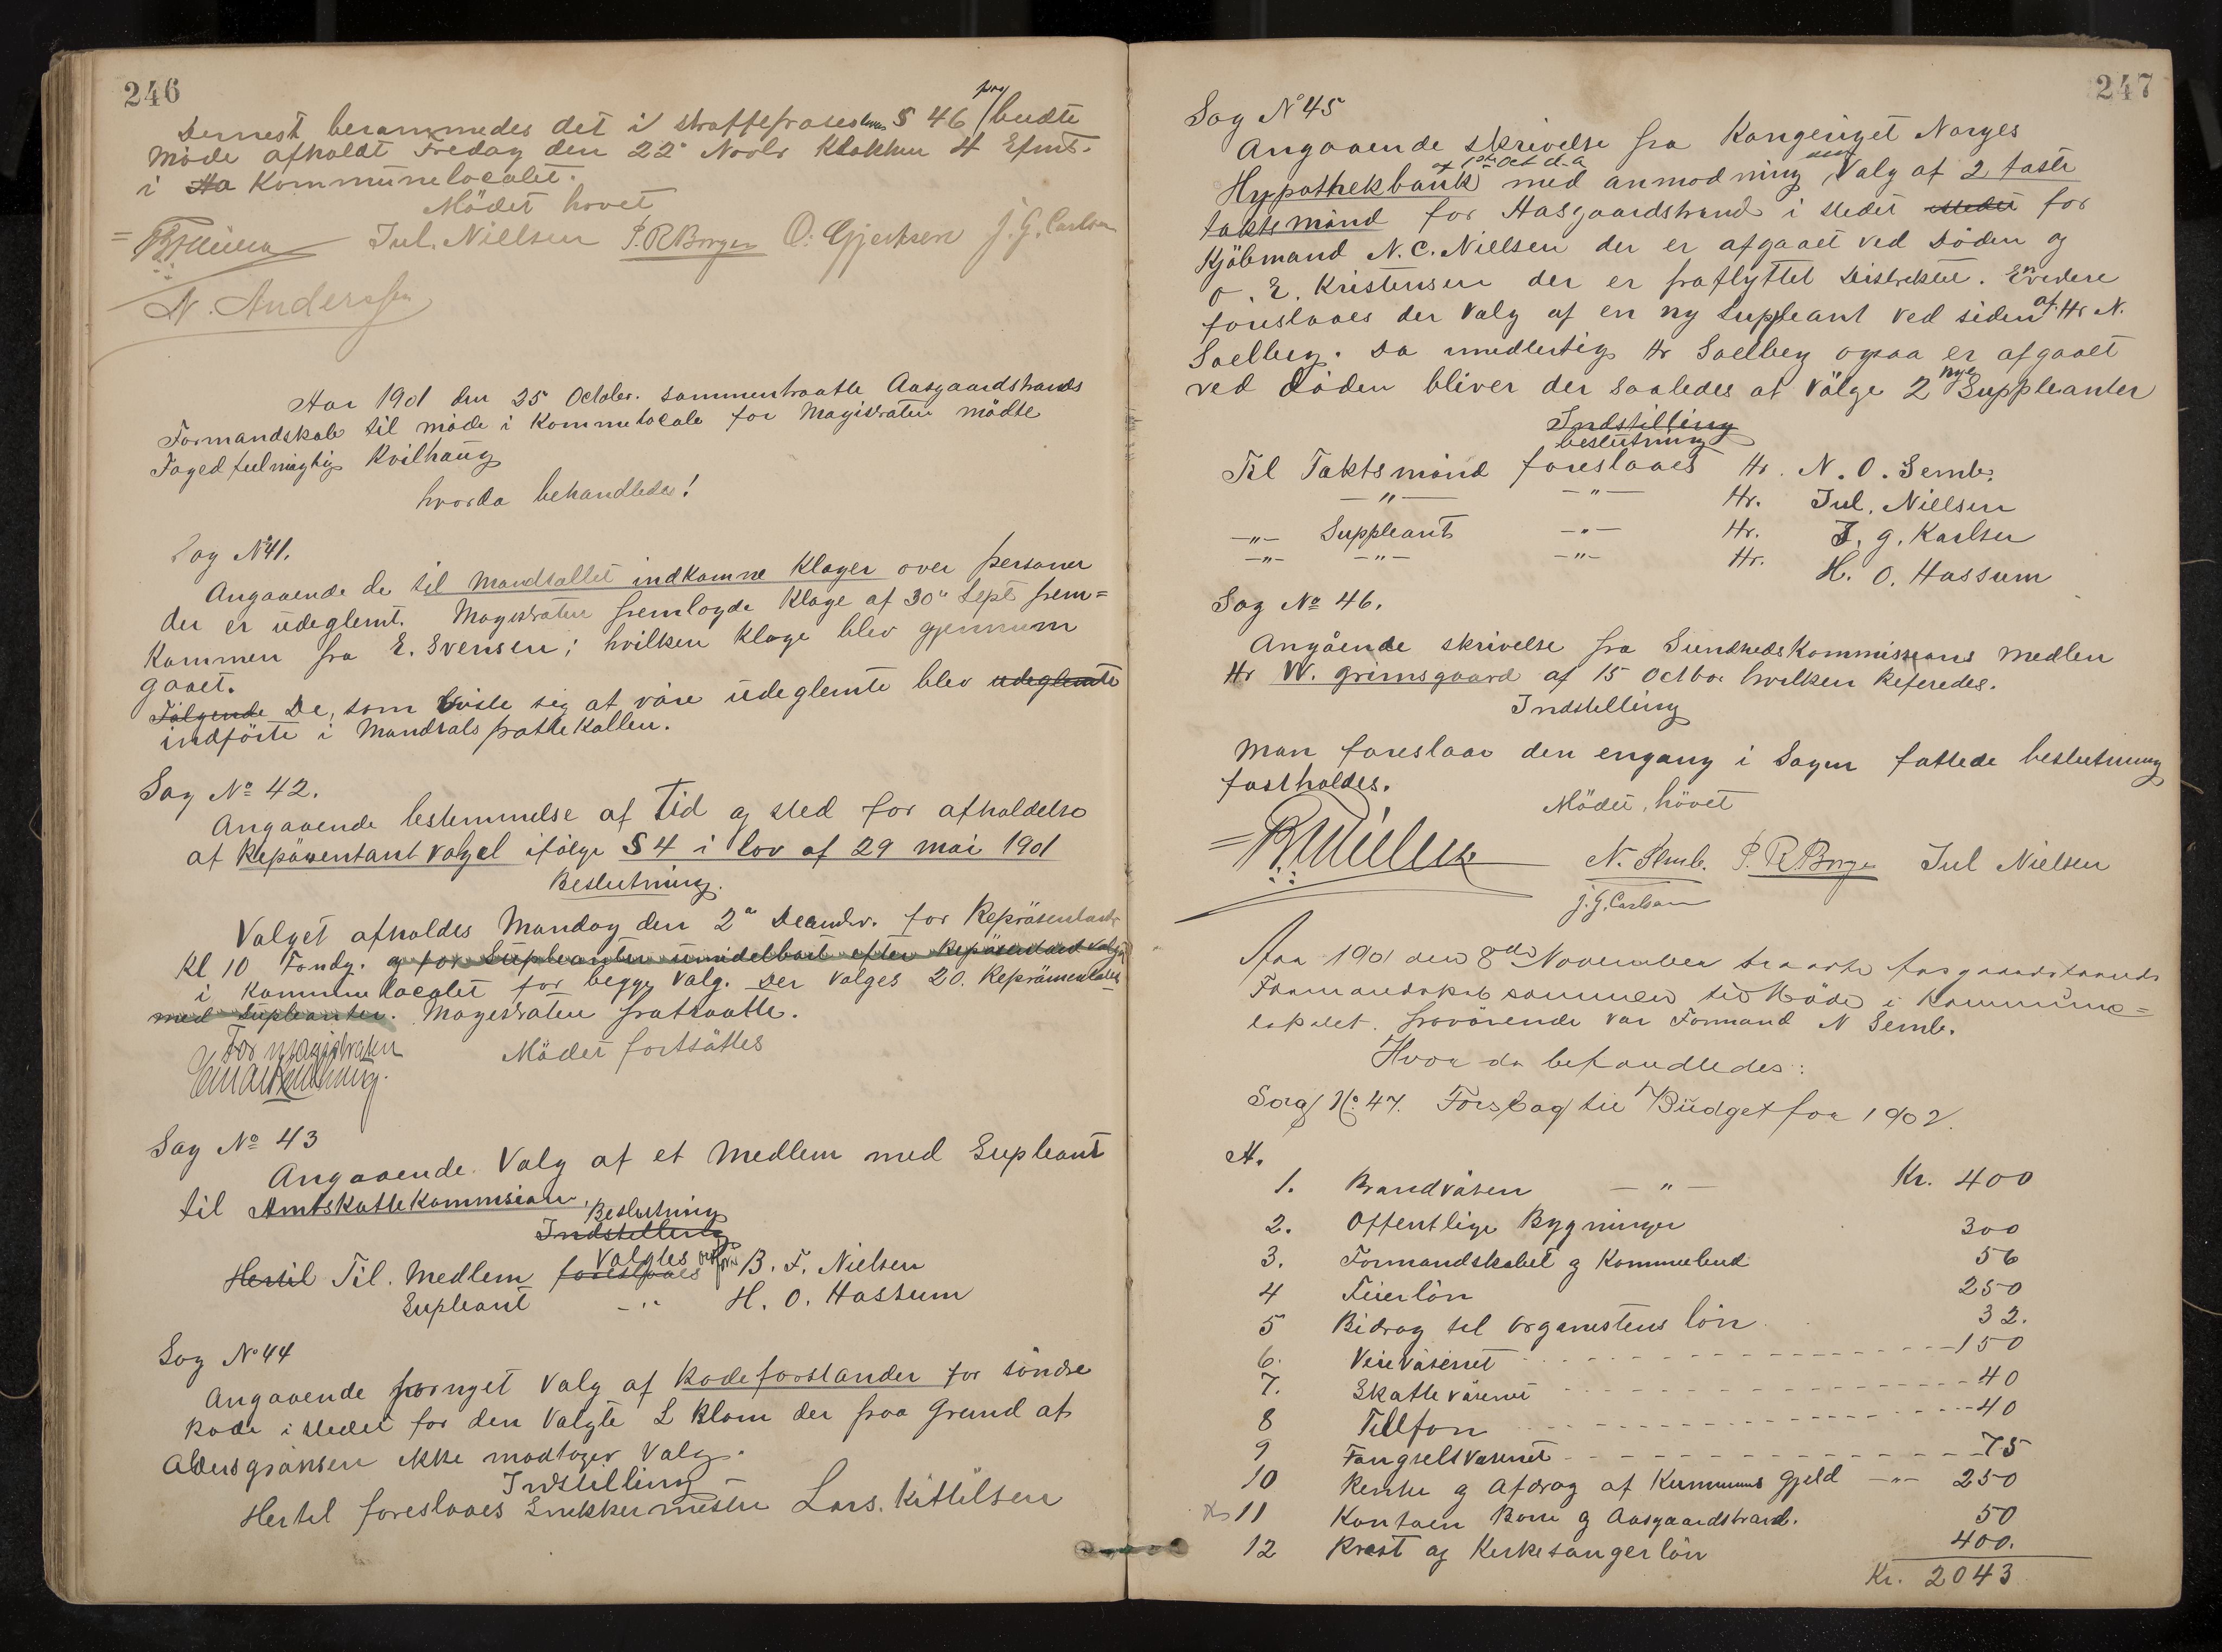 246
Dernest berammedes det i Straffeproceslovens § 46 paabudte
Möde afholdt Fredag den 22de Novbr Klokken 4 Efmt.
i Ha Kommunelocalet.
Mödet hævet
Jul. Nielsen P. R Borgen O. Gjertsen J. G. Carlsen
N. Anderssen
Aar 1901 den 25 October. sammentraatte Aasgaardstrands
Formandskab til möde i Kommelocale for Magistraten mödte
Fogedfulmægtig Kvilhaug
hvorda behandledes!
Sag No 41.
Angaaende de til Mandtallet indkomne Klager over personer
der er udeglemt. Magistraten fremlagde Klage af 30" Sept frem=
kommen fra E. Svensen; hvilken Klage blev gjennum
gaaet.
Fölgende De, som viste sig at väre udeglemte blev udeglemte
indförte i Mandtals protte Kollen.
Sag No 42.
Angaaende bestemmelse af Tid og sted for afholdelse
af Repäsentant valgel ifölge § 4 i lov af 29 mai 1901
Beslutning.
Valget afholdes Mandag den 2den Decembr. for Repräsentanter
Kl 10 Formdg. og for Supleanter umidelbart efter Repäsentant valget
i Kommunelocalet for begge Valg. Der Valges 20. Reprämentanter
med Supleanter. Magistraten fratraatte.
For magistraten
Mödet fortsättes
Einar Kvilhaug.
Sag No 43
Angaaende Valg af et Medlem med Supleant
til Amtskattekommision.
Beslutning
Indstilling
Hertil Til. Medlem Valgtes foreslaaes B. F. Nielsen
Supleant -"- H. O. Hassum
Sag No 44
Angaaende fornyet Valg af Rodeforstander for söndre
Rode i stedet for den Valgte L Blom der paa Grund af
Aldersgränsen ikke modtager Valg.
Indstilling
Hertil foreslaaes Snekkermester Lars. Kittilsen
247
Sag No 45
Angaaende skrivelse fra Kongeriget Norges
Hypothekbank af 1ste Oct d.a med anmodning om Valg af 2 faste
takts mänd for Aasgaardstrand i stedet istedet for
Kjöbmand N. C. Nielsen der er afgaaet ved Döden og
O. E. Kristensen der er fraflyttet Distriktet. Envidere
foreslaaes der Valg af en ny Suppleant ved siden af Hr N.
Soelberg. Da imidlertig Hr Soelberg ogsaa er afgaaet
ved Döden bliver der saaledes at Välge 2 nye Suppleanter
Indstilling
beslutning
Til Taktsmänd foreslaaes Hr. N. O. Semb.
-"- -"- Hr. Jul. Nielsen
-"- Suppleant -"- Hr. J. G. Karlsen
-"- -"- -"- Hr. H. O. Hassum
Sag No 46.
Angående skrivelse fra Sundheds Kommissions Medlem
Hr W. Grimsgaard af 15 Octbr hvilken Referedes.
Indstelling
Man foreslaar den engang i Sagen fattede beslutning
fastholdes.
Mödet hövet
N. Semb. P. R Borgen Jul Nielsen
J. G. Carlsen
Aar 1901 den 8de November traadte Aasgaardstrands
Formandskab sammen til Möde i Kommune=
lokalet. fraværende var Formand N Semb.
Hvor da behandledes:
Sag No. 47. Forslag til Budget for 1902.
A.
1. Brandväsen -"- Kr. 400
2. Offentlige Bygninger 300
3. Formandskabet og Kommebud 56
4 Feierlön 250
5 Bidrag til Organistens lön 32.
6. Veiväsenet 150
7. Skatteväsenet 40
8 Tellfon 40
9 Fängselsvæsenet 75
10 Renter og Afdrag af Kummuns gjeld -"- 250
11 Kontoen Borre og Aasgaardstrand. 50
12 Præst og Kirkesangerlön 400.
Kr. 2043